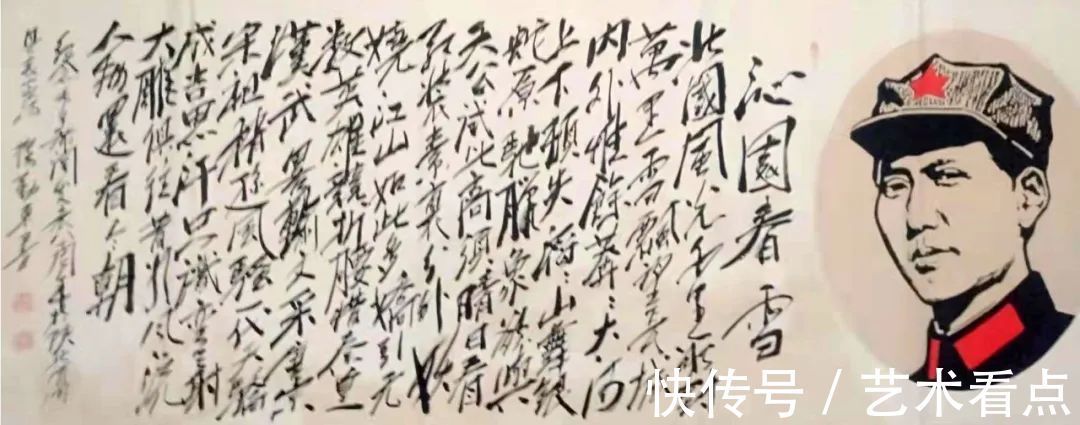 沁園春雪
北國風光千里冰封
萬里雪飄望長城
内外惟餘莽々大河
上下頓失滔々山舞銀
蛇原馳臘象欲與
天公試比高須晴日看
紅裝素裹分外妖
嬈江山如此多嬌引无
數英雄競折腰惜秦皇
漢武略輸文采唐宗
宋祖稍遜風騷一代天驕
成吉思汗只識彎弓射
大雕俱往矣數風流
人物還看今朝
快传号 / 艺术看点